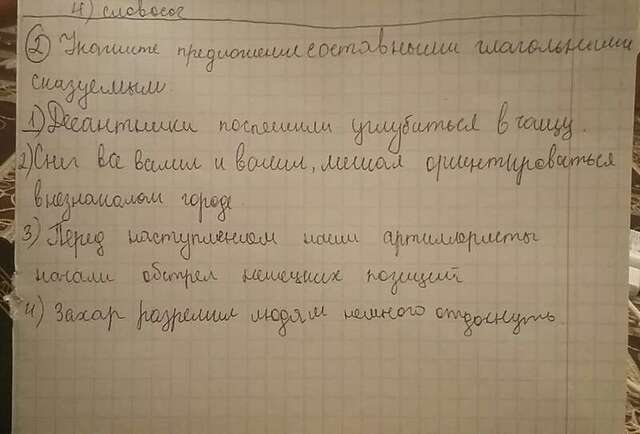 4) словосоч
2) Укажите предложения с составными глагольными
сказуемыми.
1) Десантники поспешили углубиться в чащу.
2) Снег все валил и валил, мешая ориентироваться
в незнакомом городе.
3) Перед наступлением наши артиллеристы
начали обстрел немецких позиций
4) Захар разрешил людям немного отдохнуть.